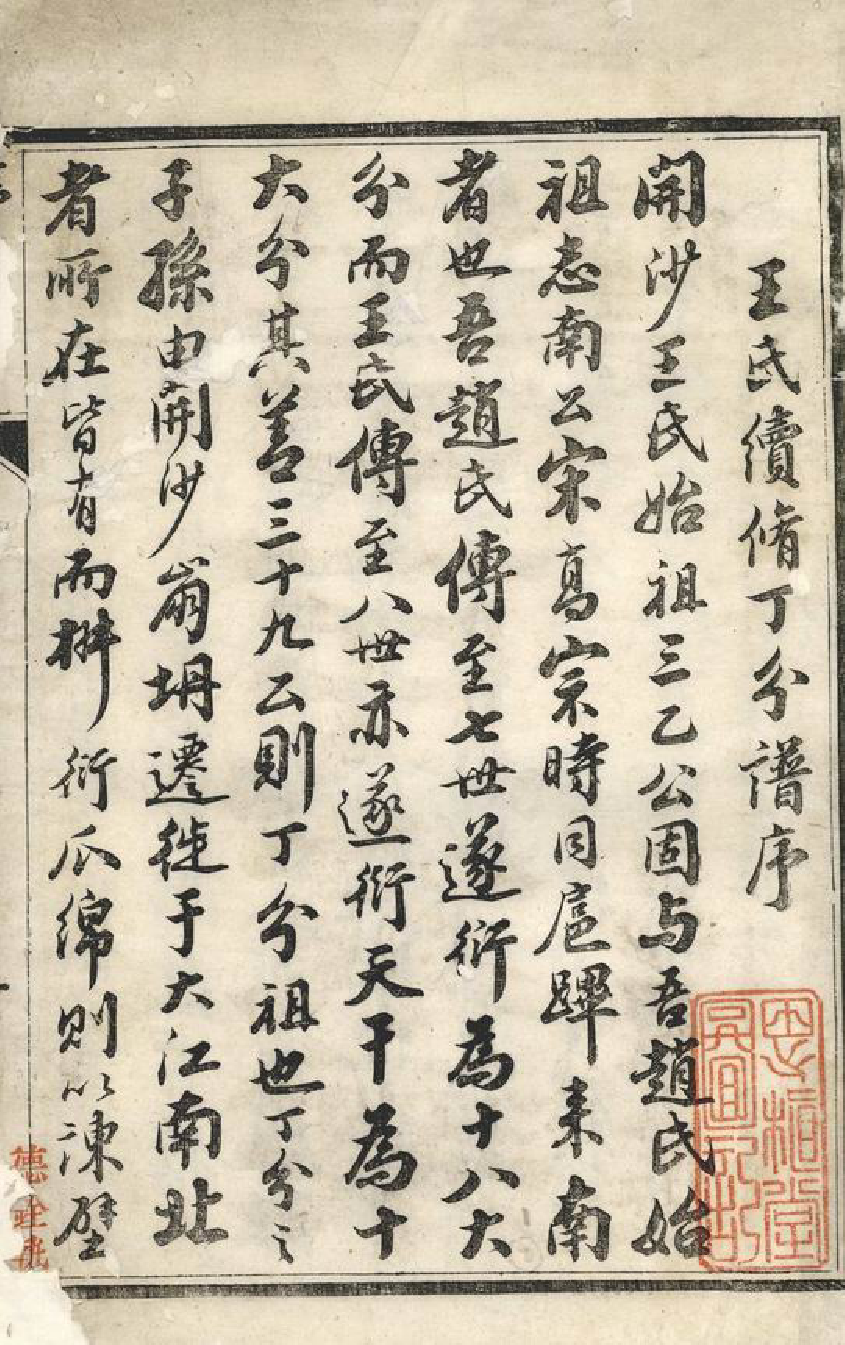 王氏續脩丁分譜序
開沙王氏始祖三乙公固与吾趙氏始
祖志南公宋髙宗時同扈蹕来南
者也吾趙氏傳至七世遂衍為十八大
分而王氏傳至八世亦遂衍天干為十
大分其善三十九公則丁分祖也丁分之
子孫由開沙崩坍遷徙于大江南北
者所在皆有而栟衍瓜綿則以諫壁
三槐堂